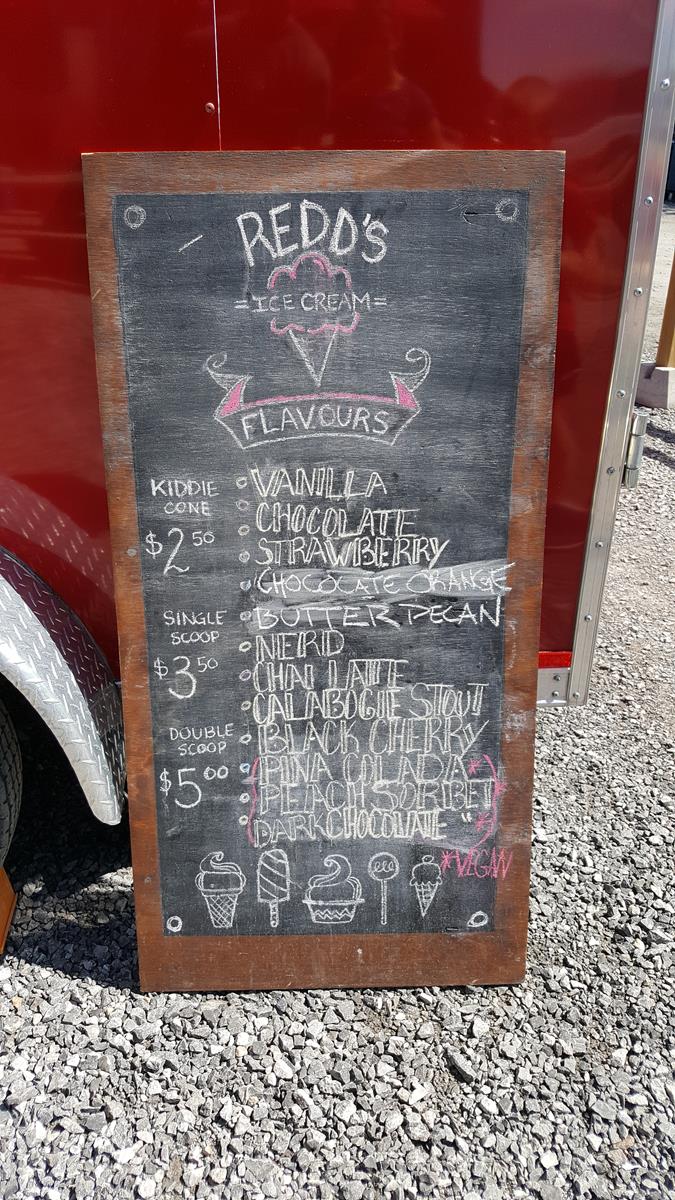 REDD'S
=ICE CREAM=
FLAVOURS
KIDDIE
CONE
$2.50
SINGLE
SCOOP
$3.50
DOUBLE
SCOOP
$5.00
VANILLA
CHOCOLATE
STRAWBERRY
CHOCOLATE ORANGE
BUTTER PECAN
NERD
CHAI LATTE
CALABOGIE STOUT
BLACK CHERRY
PINA COLADA*
PEACH SORBET*
DARK CHOCOLATE " *
*VEGAN